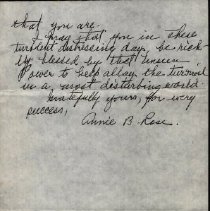 that you are.
pray that you in these
turbulent distressing days, be rich-
ly blessed by that unseen
Power to help allay the turmoil
in a most disturbing world.
Gratefully yours, for every
success,
Annie B. Rose.